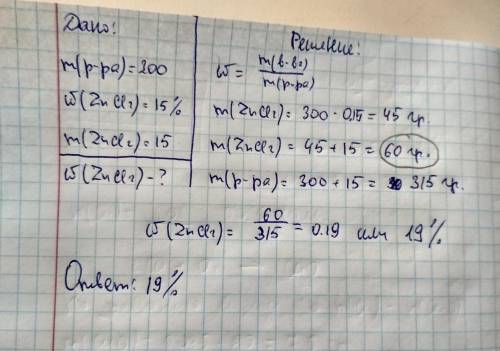 Дано:
m(р-ра)=300
ω(ZnCl₂)=15%
m(ZnCl₂)=15
ω(ZnCl₂)-?
Решение:
ω = m(в-ва)/m(р-ра)
m(ZnCl₂)= 300 · 0.15 = 45 гр.
m(ZnCl₂)= 45 + 15 = 60 гр.
m(р-ра)= 300 + 15 = 315 гр.
ω(ZnCl₂)= 60/315 = 0.19 или 19%
Ответ: 19%